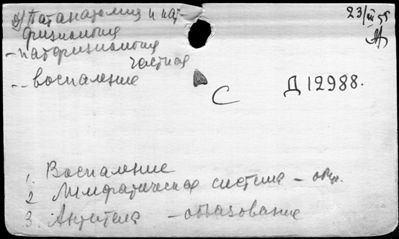 в) Патанатомия и пат-
физиология
23/III 55
- патфизиология
частная
-- воспаление
С
Д 12988.
1. Воспаление
2 Лимфатическая система -
3. Антитела - образование